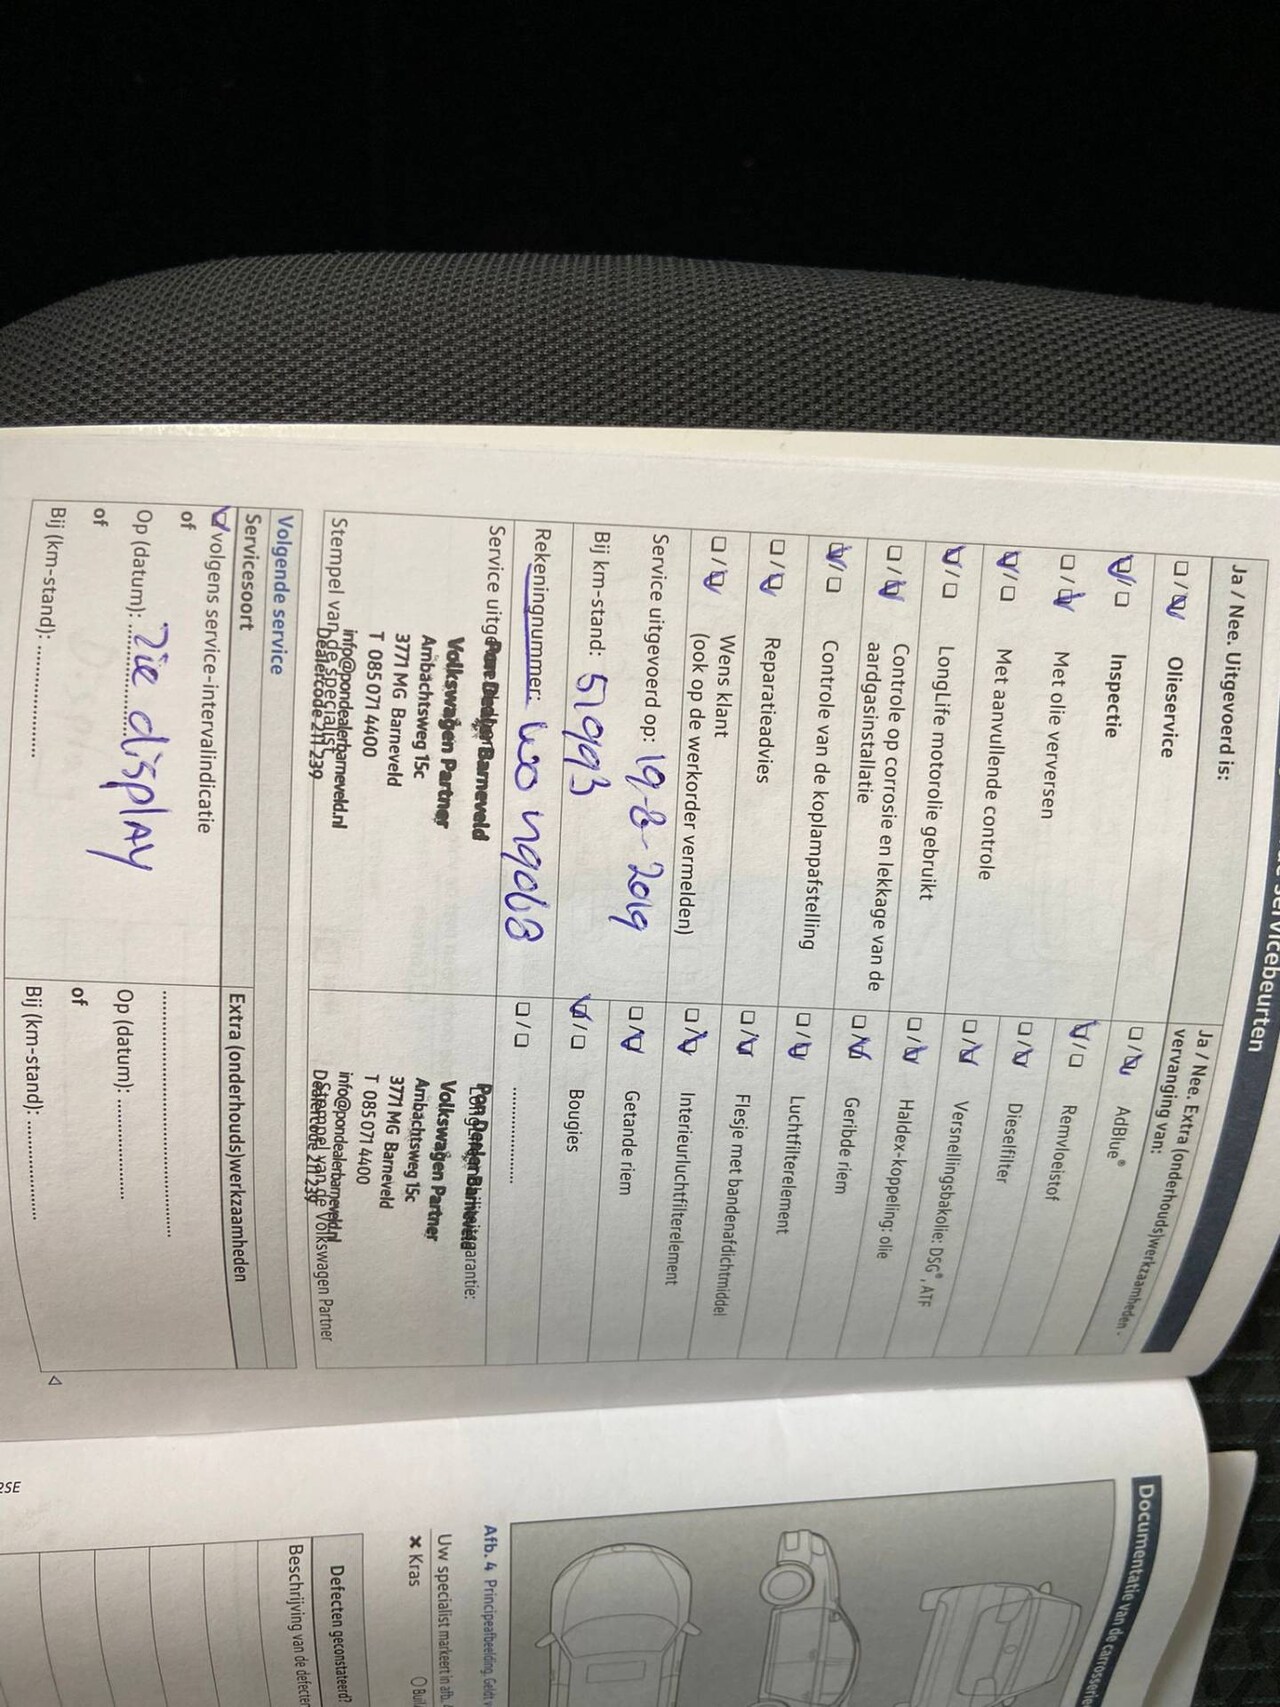 servicebeurten
Ja / Nee. Uitgevoerd is:
Olieservice
Inspectie
Met olie verversen
Met aanvullende controle
LongLife motorolie gebruikt
Controle op corrosie en lekkage van de
aardgasinstallatie
Controle van de koplampafstelling
Reparatieadvies
Wens klant
(ook op de werkorder vermelden)
Service uitgevoerd op: 19-8-2019
Bij km-stand: 51993
Rekeningnummer:
Service
Pon Dealer Barneveld
Volkswagen Partner
Ambachtsweg 15c
3771 MG Barneveld
T 085 071 4400
info@pondealerbarneveld.nl
Dealercode 211 239
Stempel van de specialist
Ja / Nee. Extra (onderhouds)werkzaamheden -
vervanging van:
AdBlue®
Remvloeistof
Dieselfilter
Versnellingsbakolie: DSG®, ATF
Haldex-koppeling: olie
Geribde riem
Luchtfilterelement
Flesje met bandenafdichtmiddel
Interieurluchtfilterelement
Getande riem
Bougies
...............
Pon Dealer Barneveld
Volkswagen Partner
Ambachtsweg 15c
3771 MG Barneveld
T 085 071 4400
info@pondealerbarneveld.nl
Dealercode 211 239
Stempel van de Volkswagen Partner
Volgende service
Servicesoort
volgens service-intervalindicatie
of
Op (datum): zie display
of
Bij (km-stand): ...............
Extra (onderhouds)werkzaamheden
...............
Op (datum): ...............
of
Bij (km-stand): ...............
Documentatie van de carrosserie
Afb. 4 Principeafbeelding. Geldt v
Uw specialist markeert in afb.
× Kras
Defecten geconstateerd?
Beschrijving van de defecten